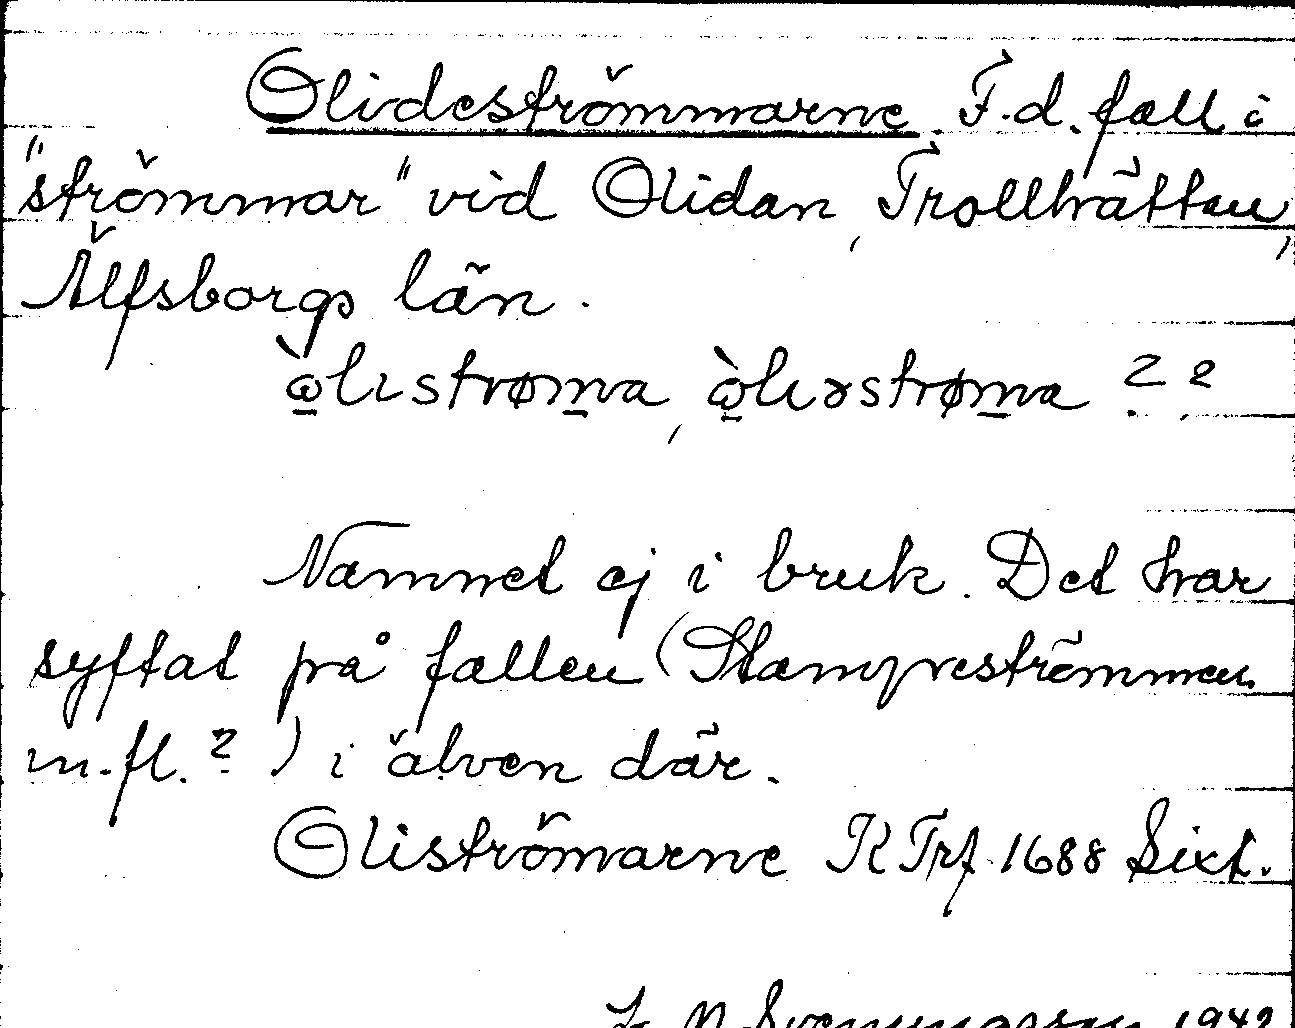 Olideströmmarne. F.d. fall i
"strömmar" vid Olidan, Trollhättan,
Älfsborgs län.
ò̱lıstrøm̱a, ò̱lıəstrøm̱a ? ?
Namnet ej i bruk. Det har
syftat på fallen (Stampeströmmen
m.fl.?) i älven där.
Oliströmarne KTrf 1688 Sixt.
Svenungsson 1942